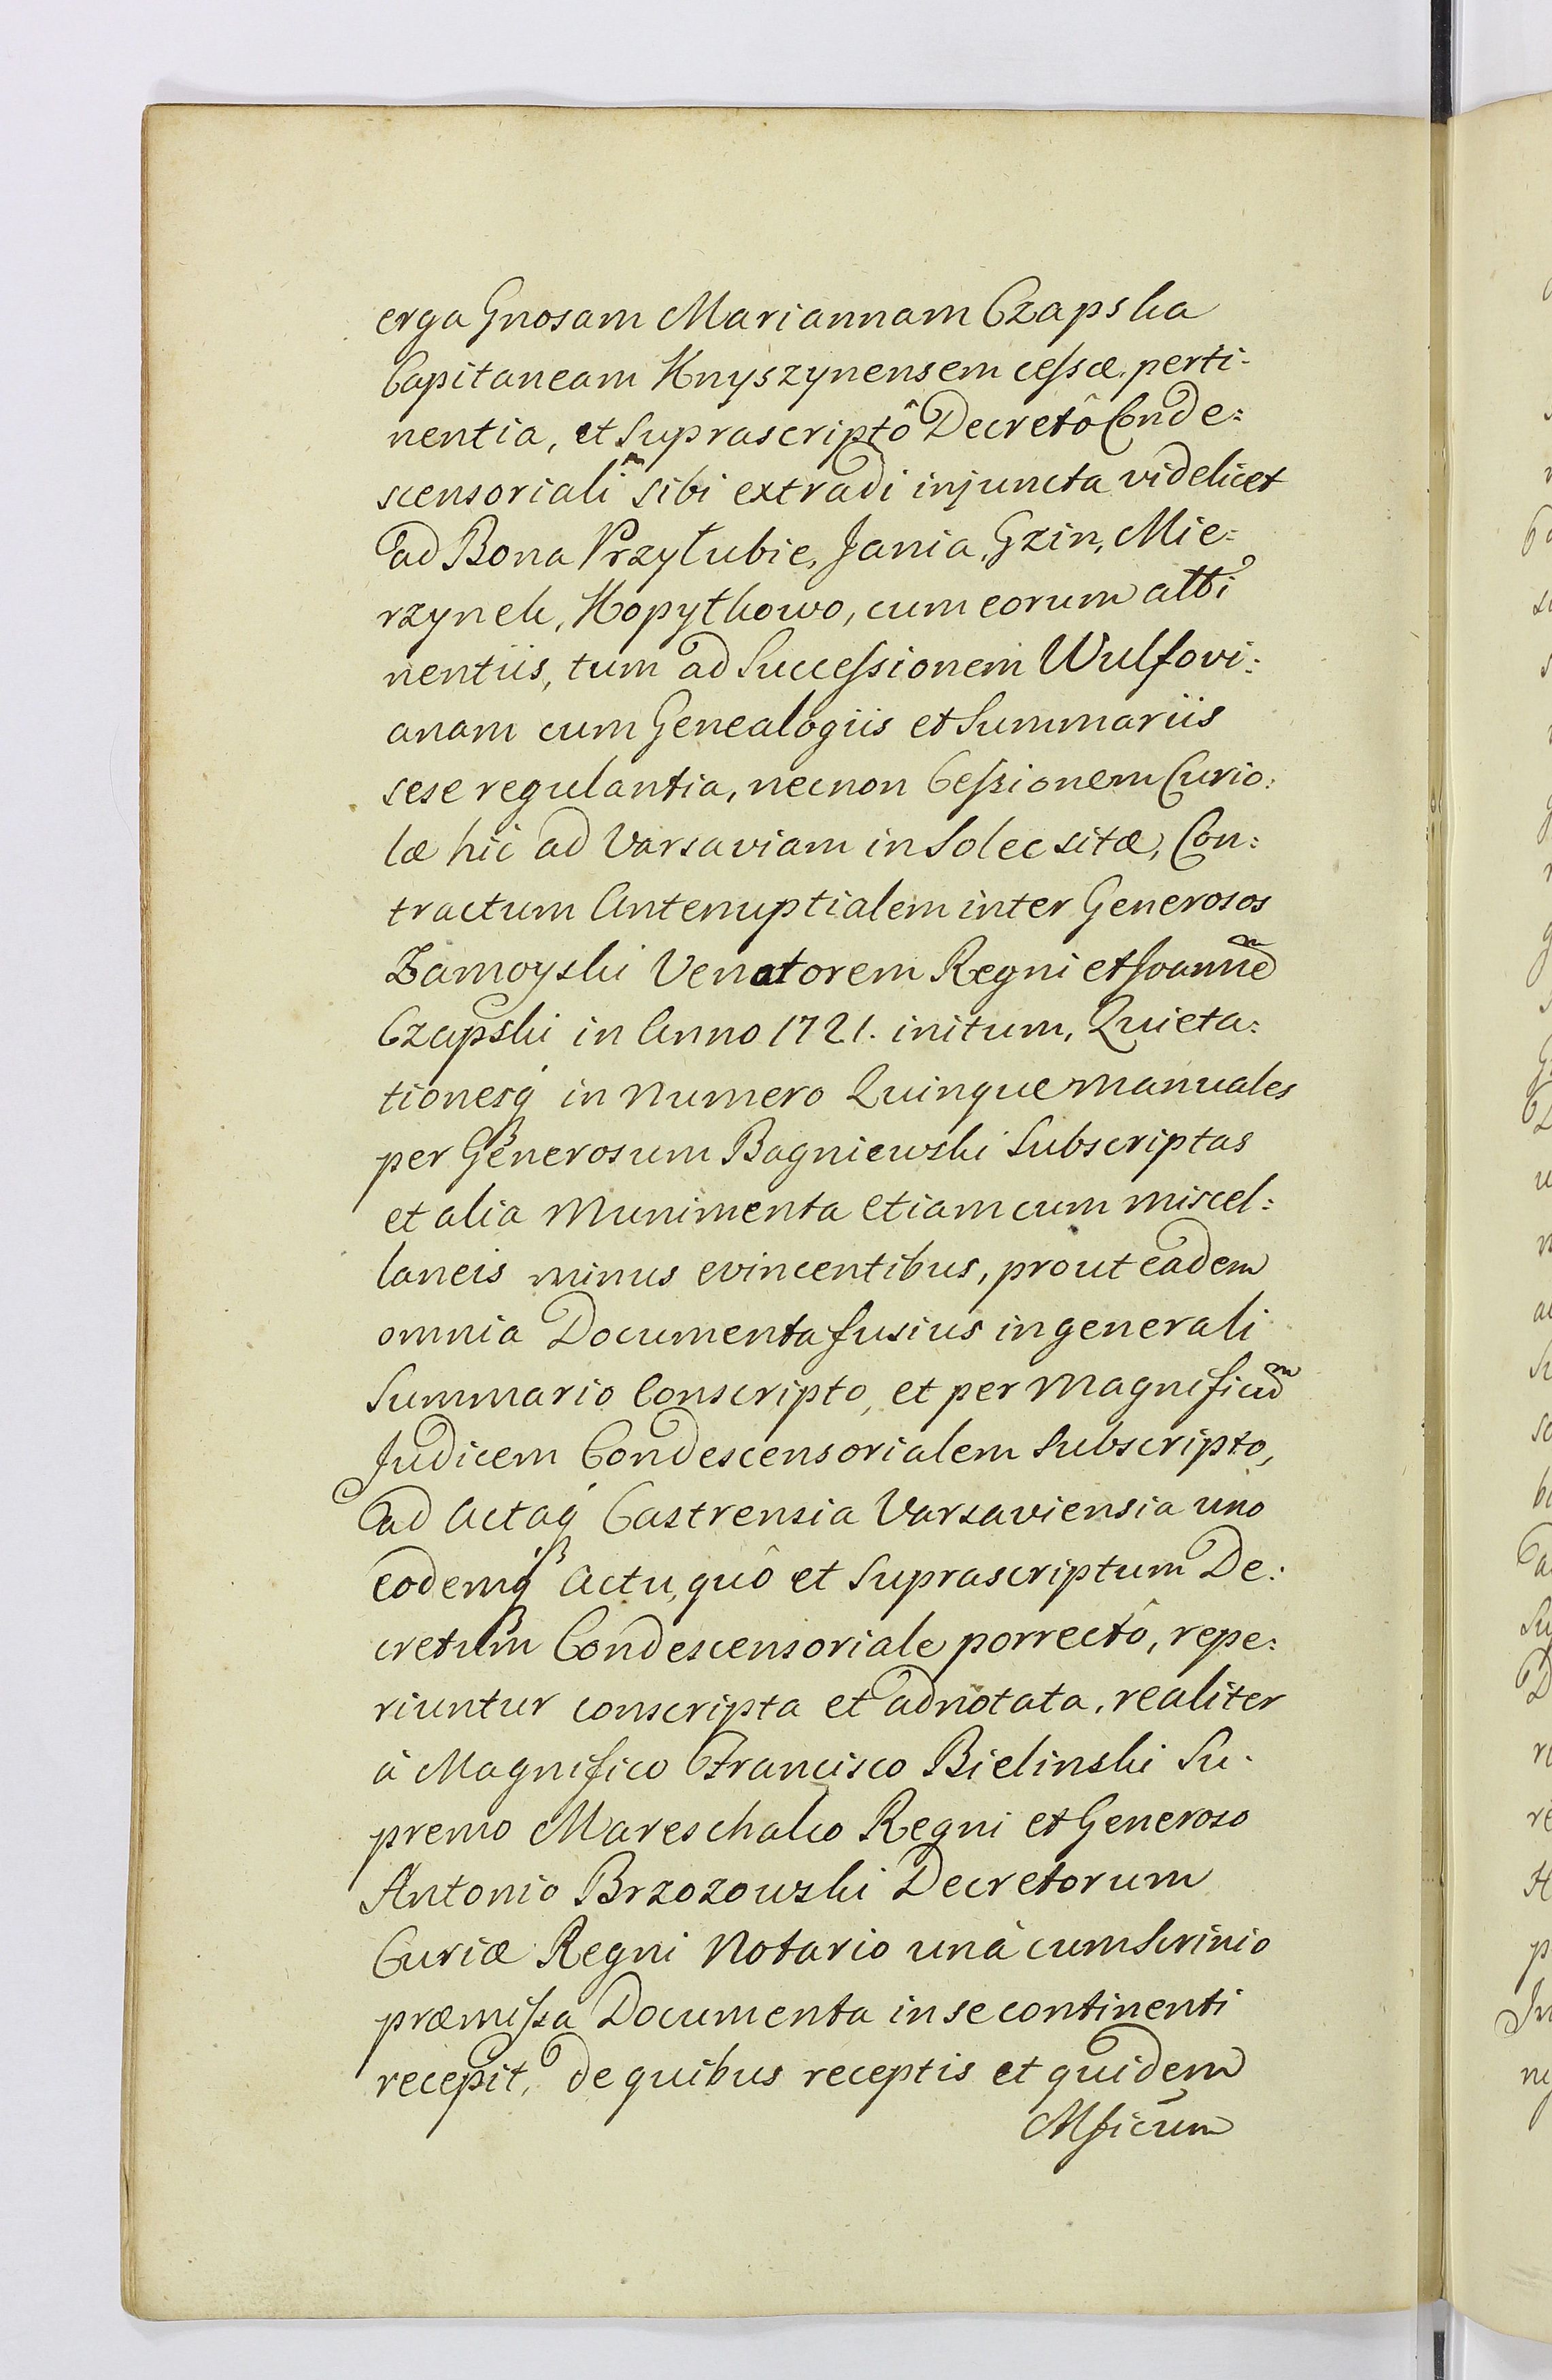 erga Gnosam Mariannam Czapska
Capitaneam Knyszynensem cessæ perti:
nentia, et Suprascriptô Decretô Conde:
scensoriali sibi extradi injuncta videlicet
ad Bona Przyłubie, Jania, Gzin, Mie:
rzynek, Kopytkowo, cum eorum atti
nentiis, tum ad Successionem Wulfovi:
anam cum Genealogiis et Summariis
sese regulantia, necnon Cessionem Curio:
læ hic ad Varsaviam in Solec sitæ, Con:
tractum Antenuptialem inter Generosos
Zamoyski Venatorem Regni et Joannē
Czapski in Anno 1721. initum, Quieta:
tionesq́ in Numero Quinque manuales
per Generosum Bagniewski Subscriptas
et alia Munimenta etiam cum miscel:
laneis minus evincentibus, prout eadem
omnia Documenta fusius in generali
Summario Conscripto, et per Magnificum
Judicem Condescensorialem Subscripto,
ad Actaq́ Castrensia Varsaviensia uno
eodemq́ Actu, quô et Suprascriptum De:
cretum Condescensoriale porrectô, repe:
riuntur conscripta et adnotata, realiter
à Magnifico Francisco Bielinski Su:
premo Mareschalco Regni et Generoso
Antonio Brzozowski Decretorum
Curiæ Regni Notario unà cum Scrinio
præmissa Documenta in se continenti
recepit, de quibus receptis et quidem
Mficum